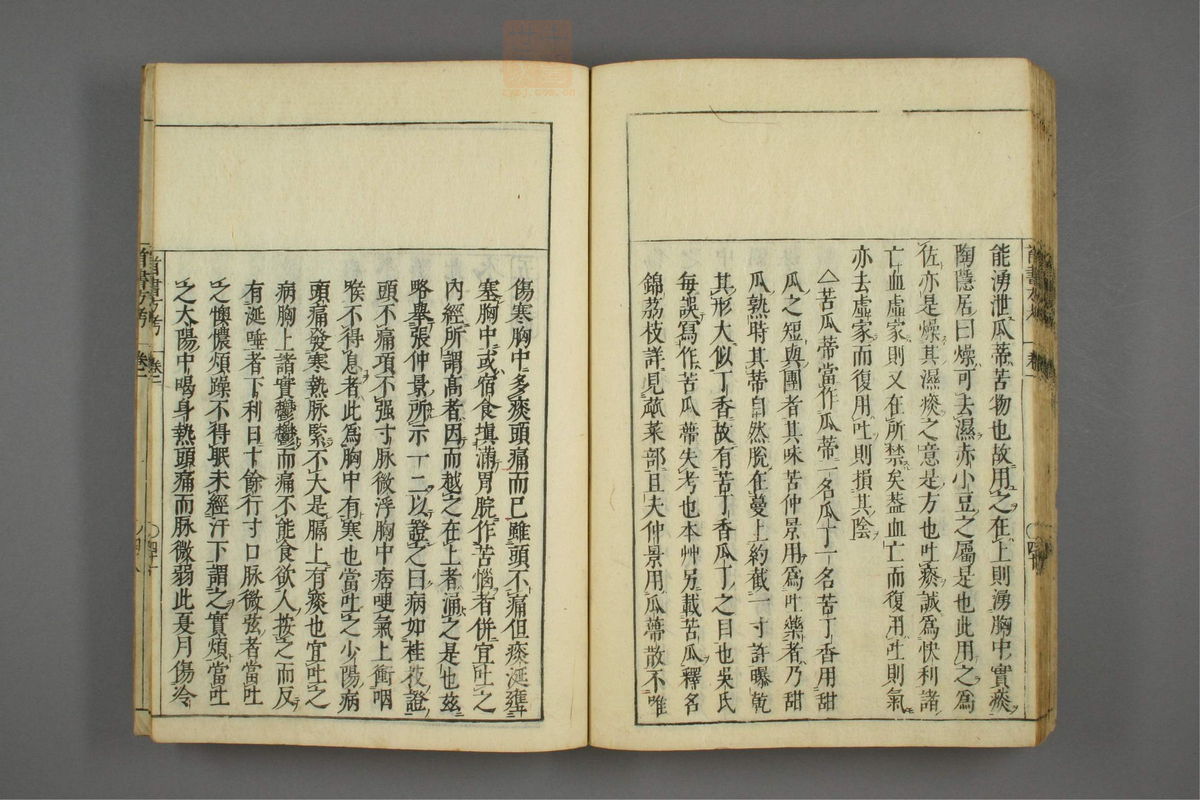 能湧泄瓜蒂苦物也故用之在上則湧胸中實痰
陶隱居曰燥可去濕赤小豆之屬是也此用之為
佐亦是燥其濕痰之意是方也吐痰誠為快利諸
亡血虛家則又在所禁矣蓋血亡而復用吐則氣
亦去虛家而復用吐則損其陰
△苦瓜蒂當作瓜蒂一名瓜丁一名苦丁香用甜
瓜之短與團者其味苦仲景用為吐藥者乃甜
瓜熟時其蒂自然脫在蔓上約截一寸許曝乾
其形大似丁香故有苦丁香瓜丁之目也吳氏
每誤寫作苦瓜蒂失考也本艸另載苦瓜釋名
錦荔枝詳見蓏菜部且夫仲景用瓜蒂散不唯
傷寒胸中多痰頭痛而已雖頭不痛但痰涎壅
塞胸中或宿食填滿胃脘作苦惱者併宜吐之
內經所謂高者因而越之在上者涌之是也茲
略舉張仲景所示一二以證之曰病如桂枝證
頭不痛項不强寸脉微浮胸中痞哽氣上衝咽
喉不得息者此為胸中有寒也當吐之少陽病
頭痛發寒熱脉緊不大是膈上有痰也宜吐之
病胸上諸實鬱鬱而痛不能食欲人按之而反
有涎唾者下利日十餘行寸口脉微弦者當吐
之懊憹煩躁不得眠未經汗下謂之實煩當吐
之太陽中暍身熱頭痛而脉微弱此夏月傷冷
卷二